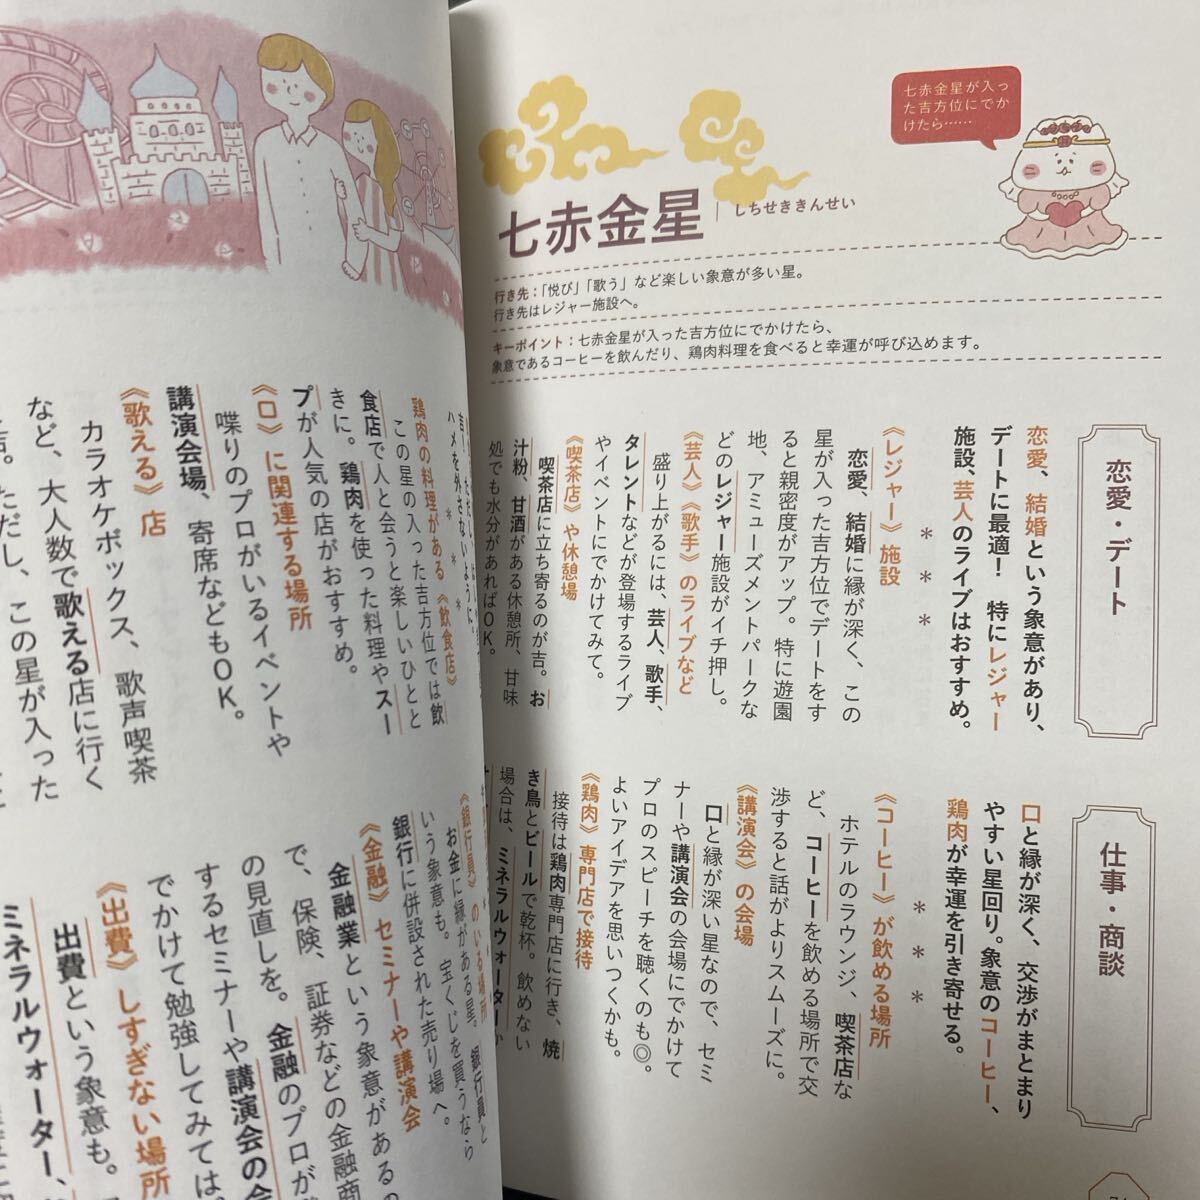 七赤金星が入っ
た吉方位にでか
けたら……
七赤金星
しちせききんせい
行き先：「悦び」「歌う」など楽しい象意が多い星。
行き先はレジャー施設へ。
キーポイント：七赤金星が入った吉方位にでかけたら、
象意であるコーヒーを飲んだり、鶏肉料理を食べると幸運が呼び込めます。
恋愛・デート
恋愛、結婚という象意があり、
デートに最適！　特にレジャー
施設、芸人のライブはおすすめ。
＊　＊　＊
《レジャー》施設
恋愛、結婚に縁が深く、この
星が入った吉方位でデートをす
ると親密度がアップ。特に遊園
地、アミューズメントパークな
どのレジャー施設がイチ押し。
《芸人》《歌手》のライブなど
盛り上がるには、芸人、歌手、
タレントなどが登場するライブ
やイベントにでかけてみて。
《喫茶店》や休憩場
喫茶店に立ち寄るのが吉。お
汁粉、甘酒がある休憩所、甘味
処でも水分があればOK。
仕事・商談
口と縁が深く、交渉がまとまり
やすい星回り。象意のコーヒー、
鶏肉が幸運を引き寄せる。
＊　＊　＊
《コーヒー》が飲める場所
ホテルのラウンジ、喫茶店な
ど、コーヒーを飲める場所で交
渉すると話がよりスムーズに。
《講演会》の会場
口と縁が深い星なので、セミ
ナーや講演会の会場にでかけて
プロのスピーチを聴くのも◎。
よいアイデアを思いつくかも。
《鶏肉》専門店で接待
接待は鶏肉専門店に行き、焼
き鳥とビールで乾杯。飲めない
場合は、ミネラルウォーターか
ハメを外さないように。
＊　＊　＊
鶏肉の料理がある《飲食店》
この星の入った吉方位では飲
食店で人と会うと楽しいひとと
きに。鶏肉を使った料理やスー
プが人気の店がおすすめ。
《口》に関連する場所
喋りのプロがいるイベントや
講演会場、寄席などもOK。
《歌える》店
カラオケボックス、歌声喫茶
など、大人数で歌える店に行く
吉。ただし、この星が入った
《銀行員》のいる場所
お金に縁がある星。銀行員と
いう象意も。宝くじを買うなら
銀行に併設された売り場へ。
《金融》セミナーや講演会
金融業という象意があるの
で、保険、証券などの金融商
の見直しを。金融のプロが
するセミナーや講演会の会
でかけて勉強してみては。
《出費》しすぎない場所
出費という象意も。
ミネラルウォーター、